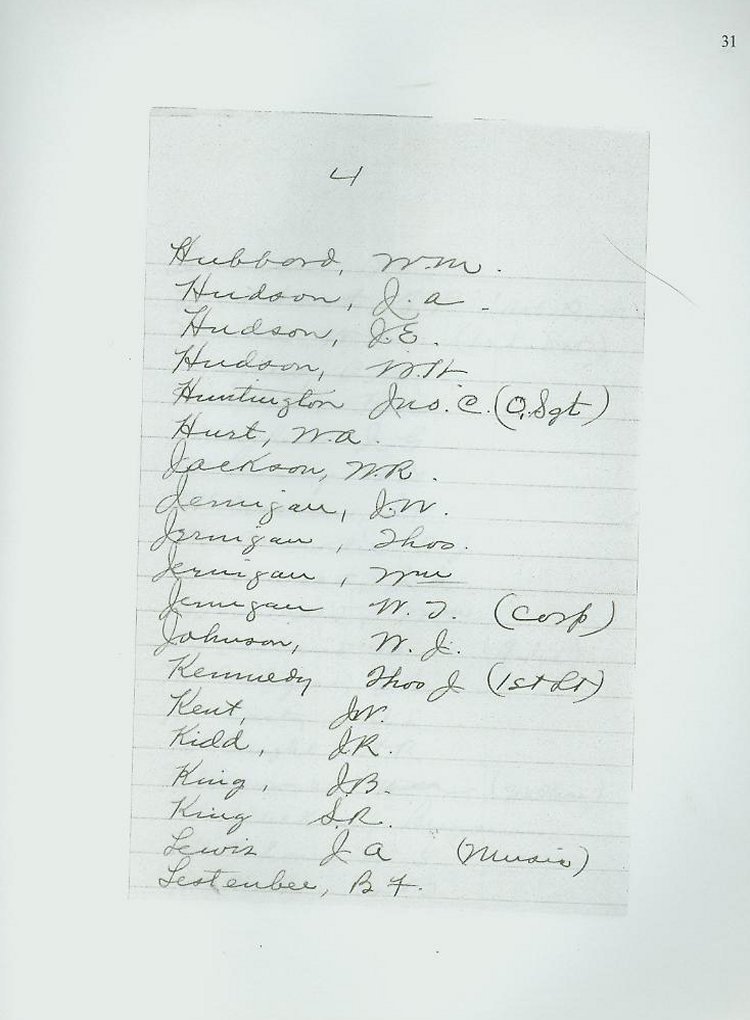 31
4
Hubbord, Wm.
Hudson, J. a.
Hudson, J.E.
Hudson, W.H
Huntington Jno. C. (O. Sgt)
Hurt, W.a.
Jackson, W.R.
Jernigan, J.W.
Jernigan, Thos.
Jernigan, Wm
Jernigan W. T. (Corp)
Johnson, W. J.
Kennedy Thos J (1st Lt)
Kent, J.W.
Kidd, J.R.
King, J.B.
King S.R.
Lewis J a (Music)
Lestenbee, B F.